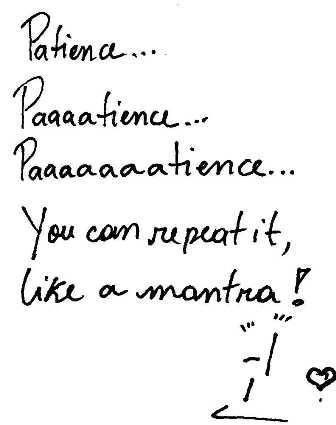 Patience...
Paaaatience...
Paaaaaaatience...
You can repeat it,
like a mantra!